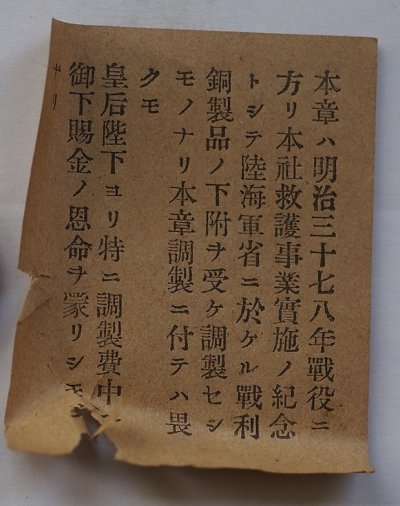 本章ハ明治三十七八年戰役ニ
方リ本社救護事業實施ノ紀念
トシテ陸海軍省ニ於ケル戰利
銅製品ノ下附ヲ受ケ調製セシ
モノナリ本章調製ニ付テハ畏
クモ
皇后陛下ヨリ特ニ調製費中
御下賜金ノ恩命ヲ蒙リシモ
ナリ